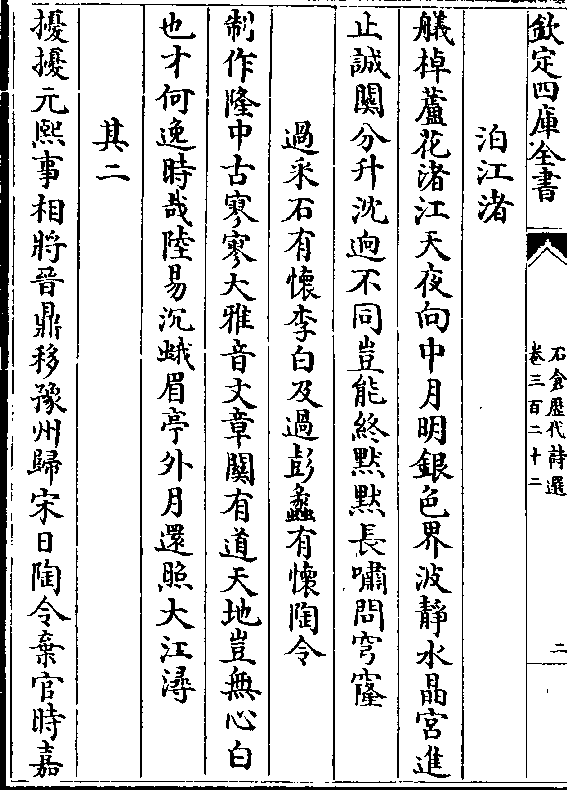 欽定四庫全書
石倉歷代詩選
卷三百二十二
二
泊江渚
艤棹蘆花渚江天夜向中月明銀色界波靜水晶宮進
止誠關分升沈逈不同豈能終默默長嘯問穹窿
過采石有懷李白及過彭蠡有懷陶令
制作隆中古寥寥大雅音文章關有道天地豈無心白
也才何逸時哉陸易沉蛾眉亭外月還照大江潯
其二
擾擾元熙事相將晉鼎移豫州歸宋日陶令棄官時嘉